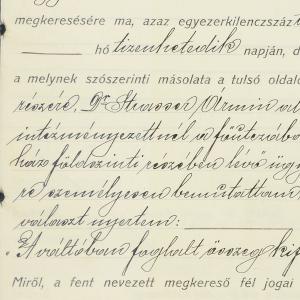 megkeresésére ma, azaz egyezerkilenczszáz
hó tizenhetedik napján, d
a melynek szószerinti másolata a tulsó oldalo
részére, Dr. Strasser Ármin
intézményezettnél a főutczába
ház földszinti részében lévő ügy
re személyesen bemutattam
választ nyertem:
"A váltóban foglalt összeg kif
Miről, a fent nevezett megkereső fél jogai